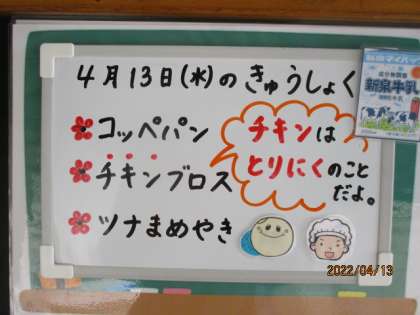 4月13日(水)のきゅうしょく
コッペパン
チキンブロス
ツナまめやき
チキンは
とりにくのこと
だよ。
新泉牛乳
2022/04/13